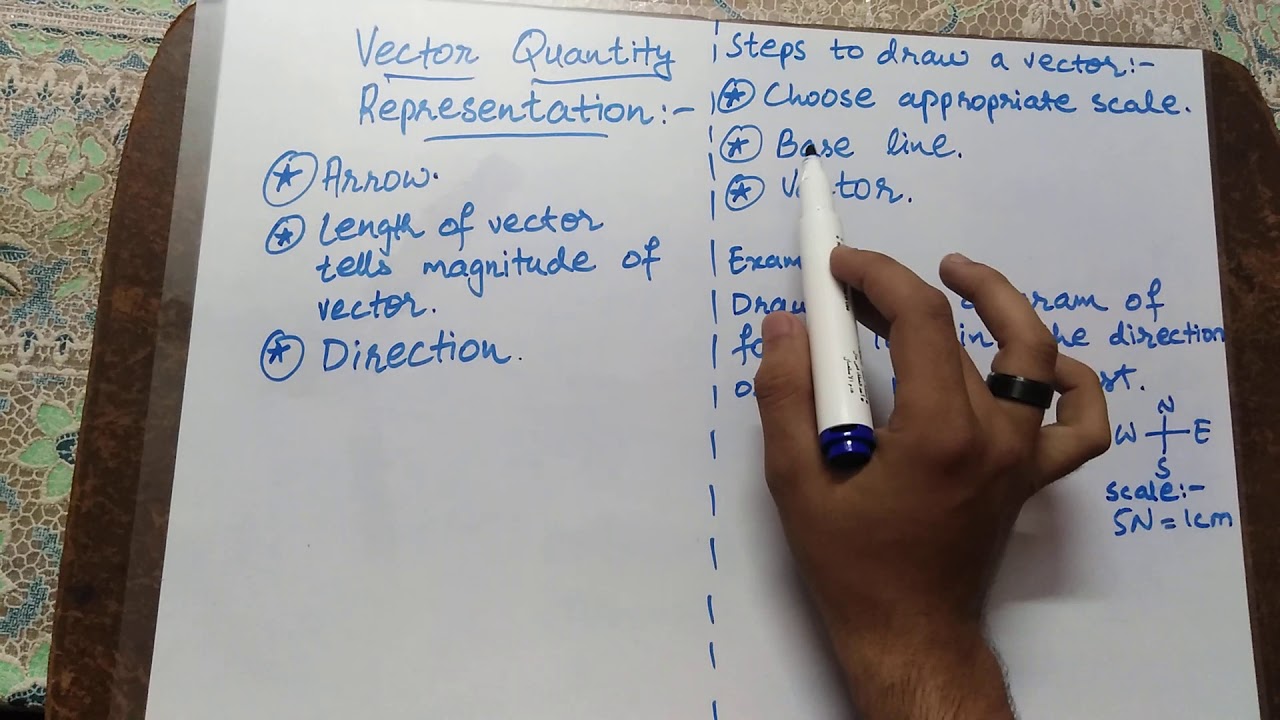 Vector Quantity
Representation:-
Arrow.
Length of vector
tells magnitude of
vector.
Direction.
Steps to draw a vector:-
Choose appropriate scale.
Base line.
Vector.
of
in the direction
N
W E
S
scale:-
5N = 1cm